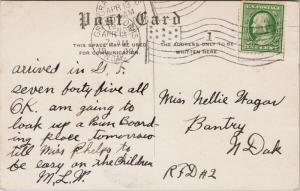 Post Card
THIS SPACE MAY BE USED FOR COMMUNICATION
THE ADDRESS ONLY TO BE WRITTEN HERE
1
arrived in D. F.
seven forty five all
OK. am going to
look up a Bum Board-
ing place tomorrow
tell Miss Phelps to
be easy on the Children
M.L.W.
Miss Nellie Hagar
Bantry
N Dak
RFD #2